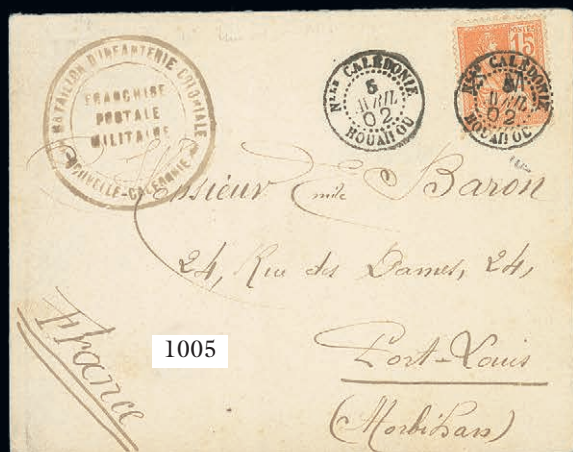 BATAILLON D'INFANTERIE COLONIALE
FRANCHISE
POSTALE
MILITAIRE
NOUVELLE-CALÉDONIE
Nlle CALÉDONIE
5
AVRIL
02
HOUAÏLOU
15
POSTE
Nlle CALÉDONIE
5
AVRIL
02
HOUAÏLOU
Monsieur Emile Baron
24, Rue des Dames, 24,
Port-Louis
(Morbihan)
France
1005